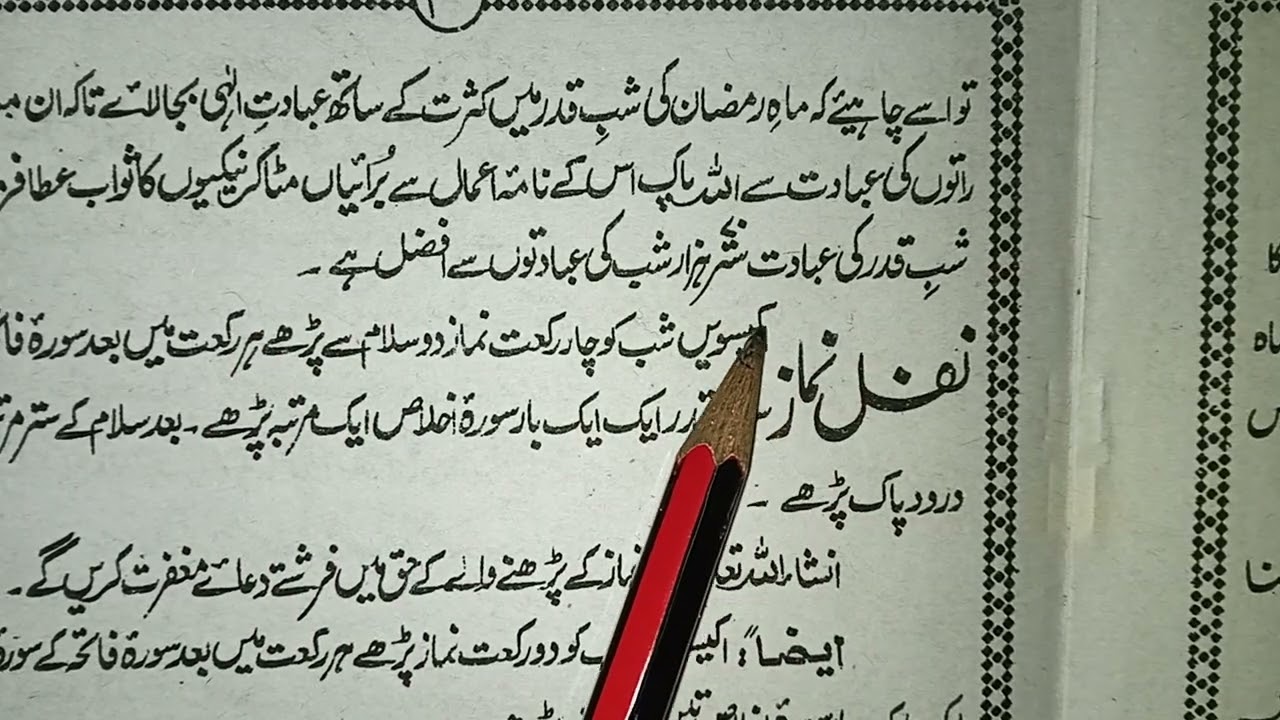 تو اسے چاہیئے کہ ماہِ رمضان کی شبِ قدر میں کثرت کے ساتھ عبادتِ الٰہی بجا لائے تاکہ ان
راتوں کی عبادت سے اللہ پاک اس کے نامۂ اعمال سے بُرائیاں مٹا کر نیکیوں کا ثواب عطا
شبِ قدر کی عبادت ستّر ہزار شب کی عبادتوں سے افضل ہے ۔
نفل نماز
شب کو چار رکعت نماز دو سلام سے پڑھے ہر رکعت میں بعد سورۂ
ایک ایک بار سورۂ اخلاص ایک مرتبہ پڑھے ۔ بعد سلام کے ستر
درود پاک پڑھے ۔
انشاء اللہ کے پڑھنے والے کے حق میں فرشتے دعائے مغفرت کریں گے ۔
ایضاً: کو دو رکعت نماز پڑھے ہر رکعت میں بعد سورۂ فاتحہ کے سورۂ